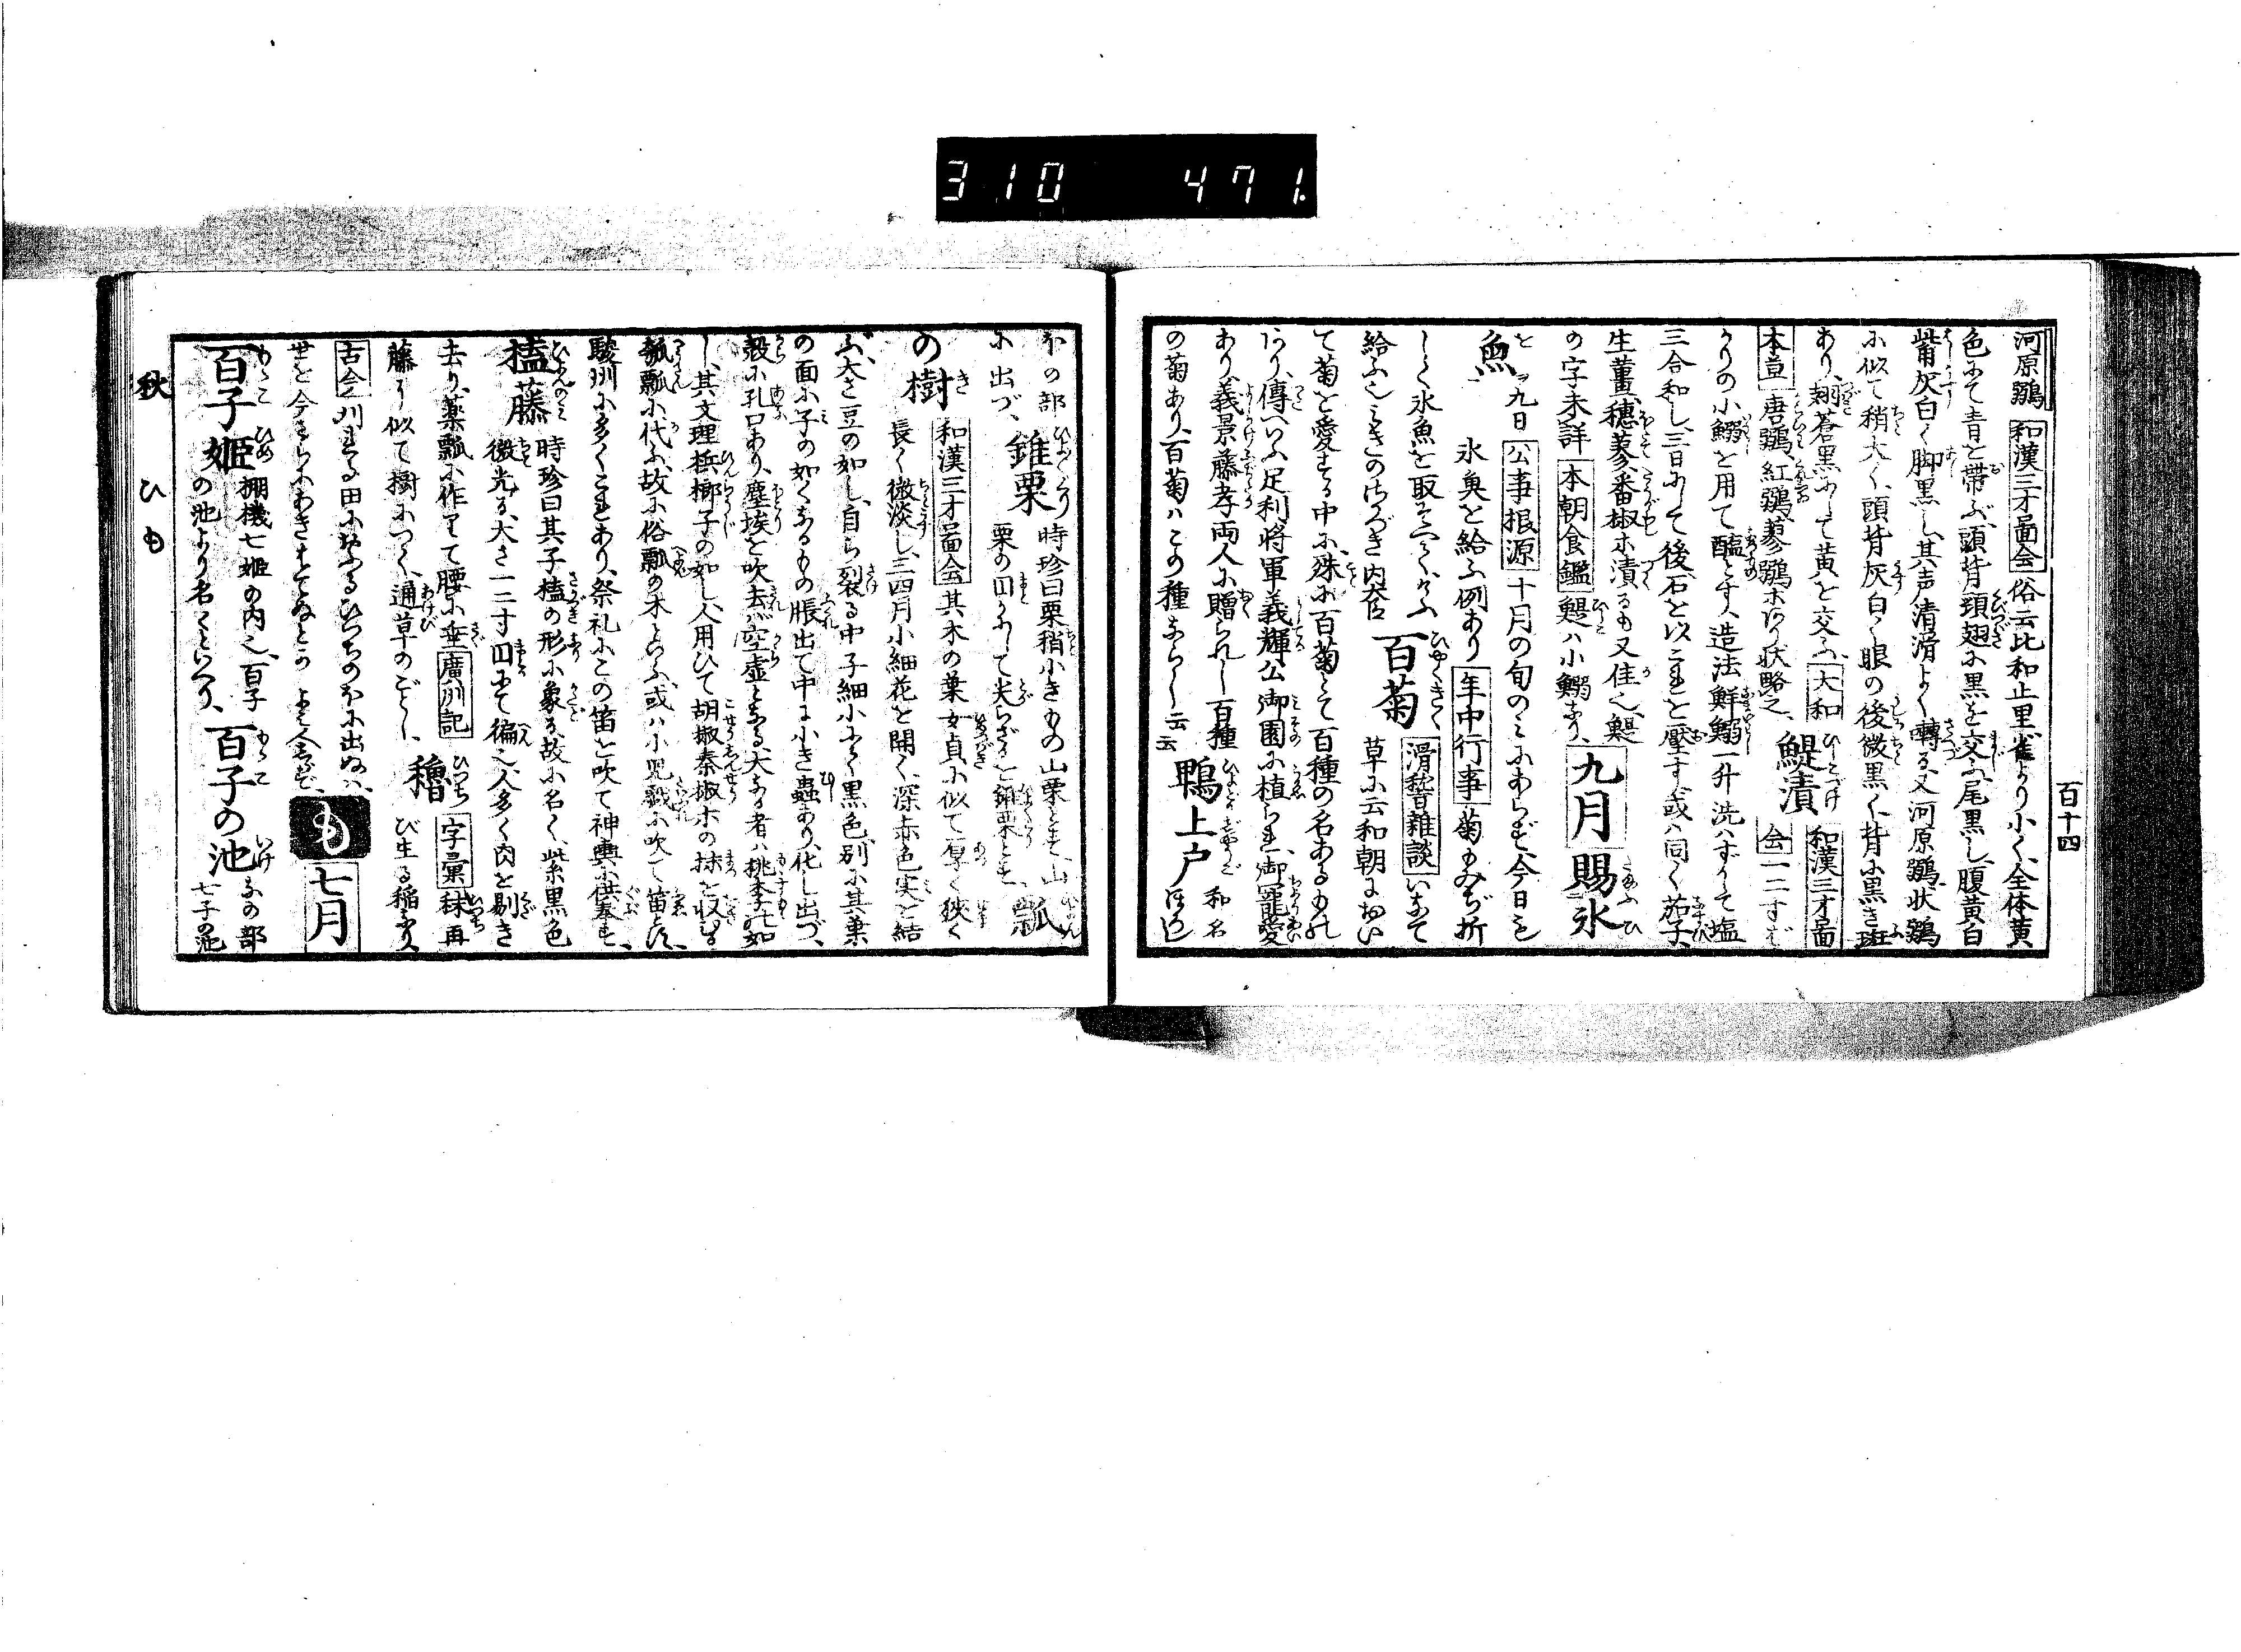 310 471.
百十四
河原鶸 和漢三才啚会 俗云比和止里雀より小く、全体黄
色にて青を帯ぶ、頭背頸翅に黒を交ふ、尾黒し、腹黄白
觜灰白く脚黒し、其声清滑よく囀る、又河原鶸、状鶸
に似て稍大く、頭背灰白く眼の後微黒く、背に黒き斑
あり、翅蒼黒にして黄を交ふ、 大和
本草 唐鶸、紅鶸、蓼鶸ホあり状略之、 鯷漬 和漢三才啚
会 一二寸ば
かりの小鰯を用て醢とす、造法鮮鰯一升洗はずして塩
三合和し、三日にして後石を以これを壓す或ハ同く茄子、
生薑、穗蓼、番椒ホ漬るも又佳也、鯷
の字未詳 本朝食鑑 鯷ハ小鰯なり、 九月 賜氷
魚 を ヲ 九日 公事根源 十月の旬のみにあらず、今日も
氷魚を給ふ例あり 年中行事 菊もみぢ折
しく氷魚を取そへてくらふ
給ふ也みきのさかづき 内大臣 百菊 滑稽雑談 いにて
草に云和朝におい
て菊を愛する中に殊に百菊とて百種の名あるもの
あり、傳へいふ足利将軍義輝公御園に植られ、御寵愛
あり、義景藤孝両人に贈られし百種
の菊あり、百菊ハこの種ならし云云 鴨上戸 和名
ほの部
に出づ、 錐栗 時珍曰栗稍小きもの山栗とす、山
栗の円にして尖らざるを錐栗とす、 瓢
の樹 和漢三才啚会 其木の葉女貞に似て厚く狭く
長く微淡し、三四月小細花を開く、深赤色実を結
ぶ、大さ豆の如し、自ら裂る中子細小にく黒色、別に其葉
の面に子の如くなるもの脹出て中に小き蟲あり、化し出づ、
殻に孔口あり、塵埃を吹去バ空虚となる、大なる者ハ桃李の如
し、其文理梹榔子の如し、人用ひて胡椒秦椒ホの抹を収め
瓠瓢に代ふ、故に俗瓢の木といふ、或ハ小児戯に吹て笛とす、
駿州に多くこれあり、祭礼にこの笛を吹て神輿に供奉す、
榼藤 時珍曰其子榼の形に象る、故に名く、紫黒色
微光る、大さ一二寸円にて徧し、人多く肉を剔き
去り、薬瓢に作りて腰に垂 廣州記
藤に似て樹につく、通草のごとし、 穭 字彙 秣再
び生る稲なり、
古今 刈れる田におふるひつちのほに出ぬハ、
世を今さらにあきはてぬとか よみ人しらず、 も 七月
百子姫 棚機七姫の内也、百子
の池より名くといへり、 百子の池 なの部
七子の池
秋 ひ も